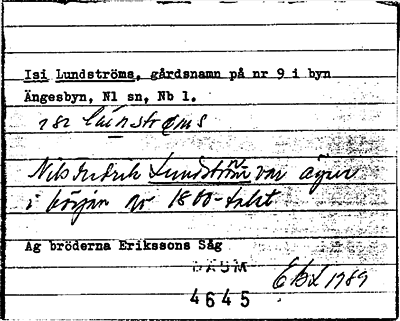 Isi Lundströms, gårdsnamn på nr 9 i byn
Ängesbyn, Nl sn, Nb l.
Nils Fredrik Lundström var ägare
i början av 1800-talet
Ag bröderna Erikssons Såg
DAUM
EbL 1989
4645